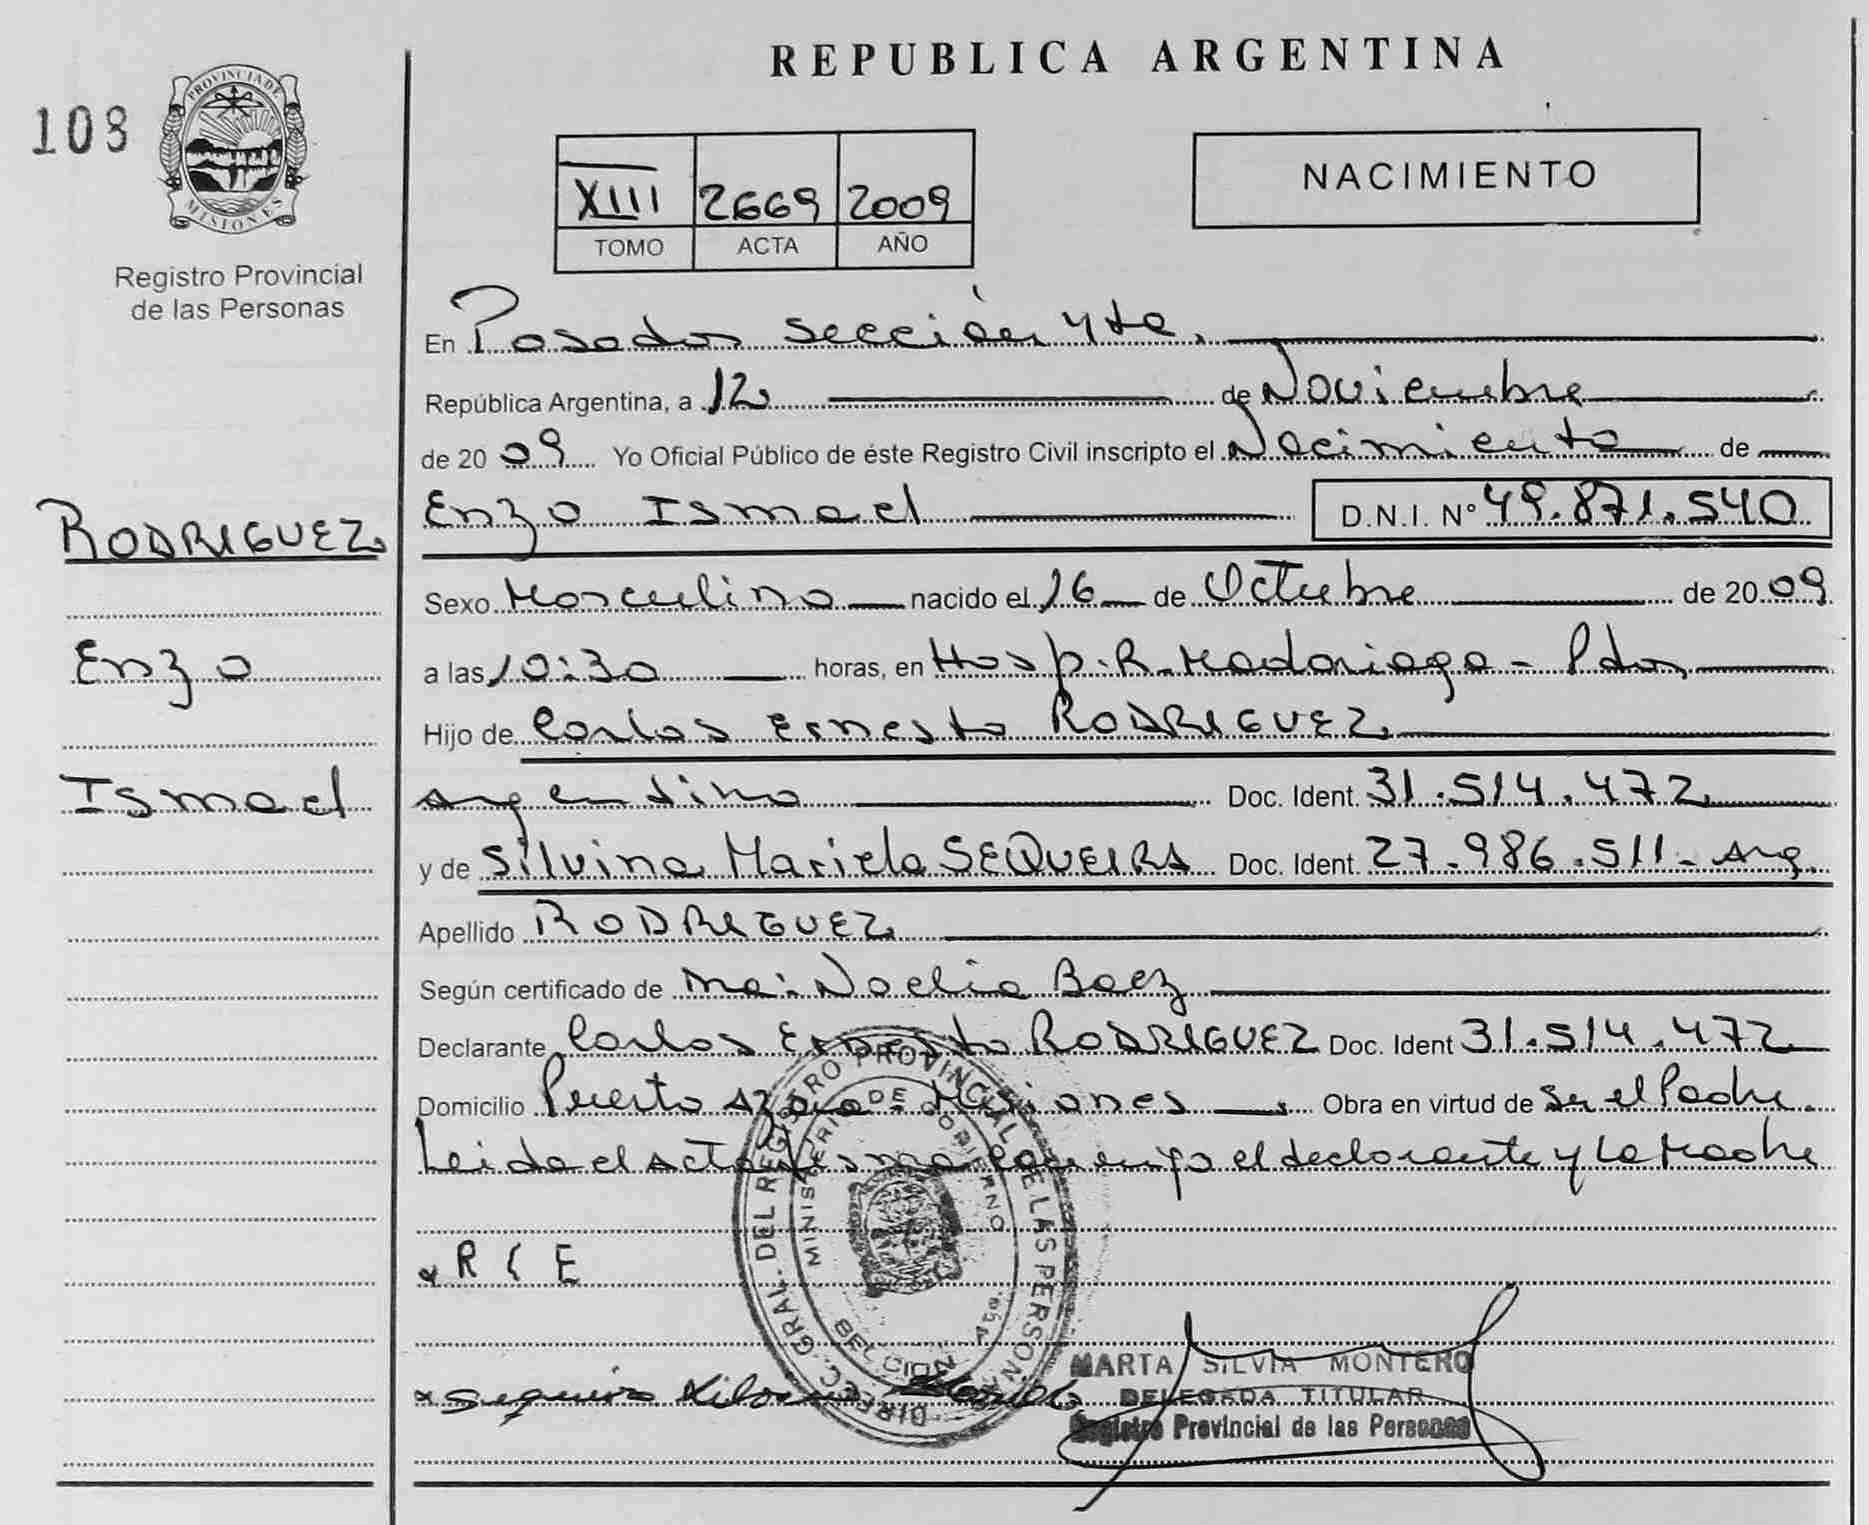 REPUBLICA ARGENTINA
103
PROVINCIA DE MISIONES
Registro Provincial
de las Personas
XIII 2669 2009
TOMO ACTA AÑO
NACIMIENTO
En Posadas sección 4ta.
República Argentina, a 12 de Noviembre
de 2009 Yo Oficial Público de éste Registro Civil inscripto el Nacimiento de
RODRIGUEZ
Enzo Ismael D.N.I. Nº 49.871.540
Sexo Masculino nacido el 16 de Octubre de 2009
Enzo
a las 10:30 horas, en Hosp. R. Madariaga - Pdas,
Hijo de Carlos Ernesto RODRIGUEZ
Ismael
argentino Doc. Ident. 31.514.472
y de Silvina Mariela SEQUEIRA Doc. Ident. 27.986.511 - Arg.
Apellido RODRIGUEZ
Según certificado de Ma: Noelia Baez
Declarante Carlos Ernesto RODRIGUEZ Doc. Ident 31.514.472
Domicilio Puerto Azara - Misiones Obra en virtud de Ser el Padre.
Leida el Acta firma conmigo el declarante y la Madre
DIRECC. GRAL. DEL REGISTRO PROVINCIAL DE LAS PERSONAS
MINISTERIO DE GOBIERNO
x R C E
MARTA SILVIA MONTERO
x Sequeira Silvina
DELEGADA TITULAR
Registro Provincial de las Personas